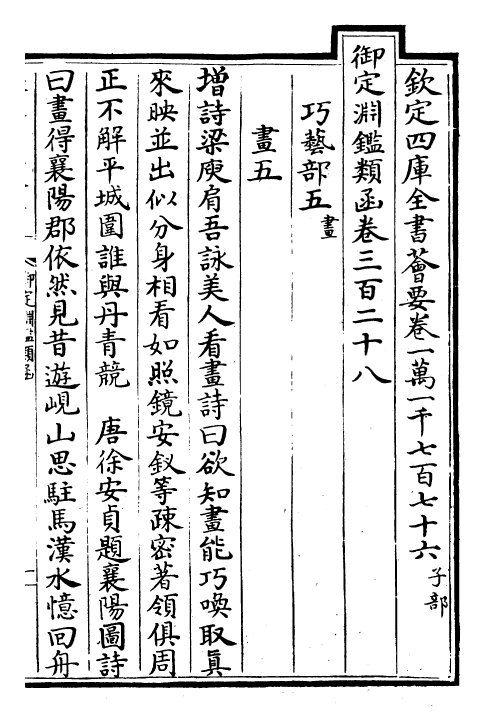 欽定四庫全書薈要卷一萬一千七百七十六 子部
御定淵鑑類函卷三百二十八
巧藝部五 畫
畫五
增詩梁庾肩吾詠美人看畫詩曰欲知畫能巧喚取眞
來映並出似分身相看如照鏡安釵等疎密著領俱周
正不解平城圍誰與丹青競 唐徐安貞題襄陽圖詩
曰畫得襄陽郡依然見昔遊峴山思駐馬漢水憶回舟
御定淵鑑類函